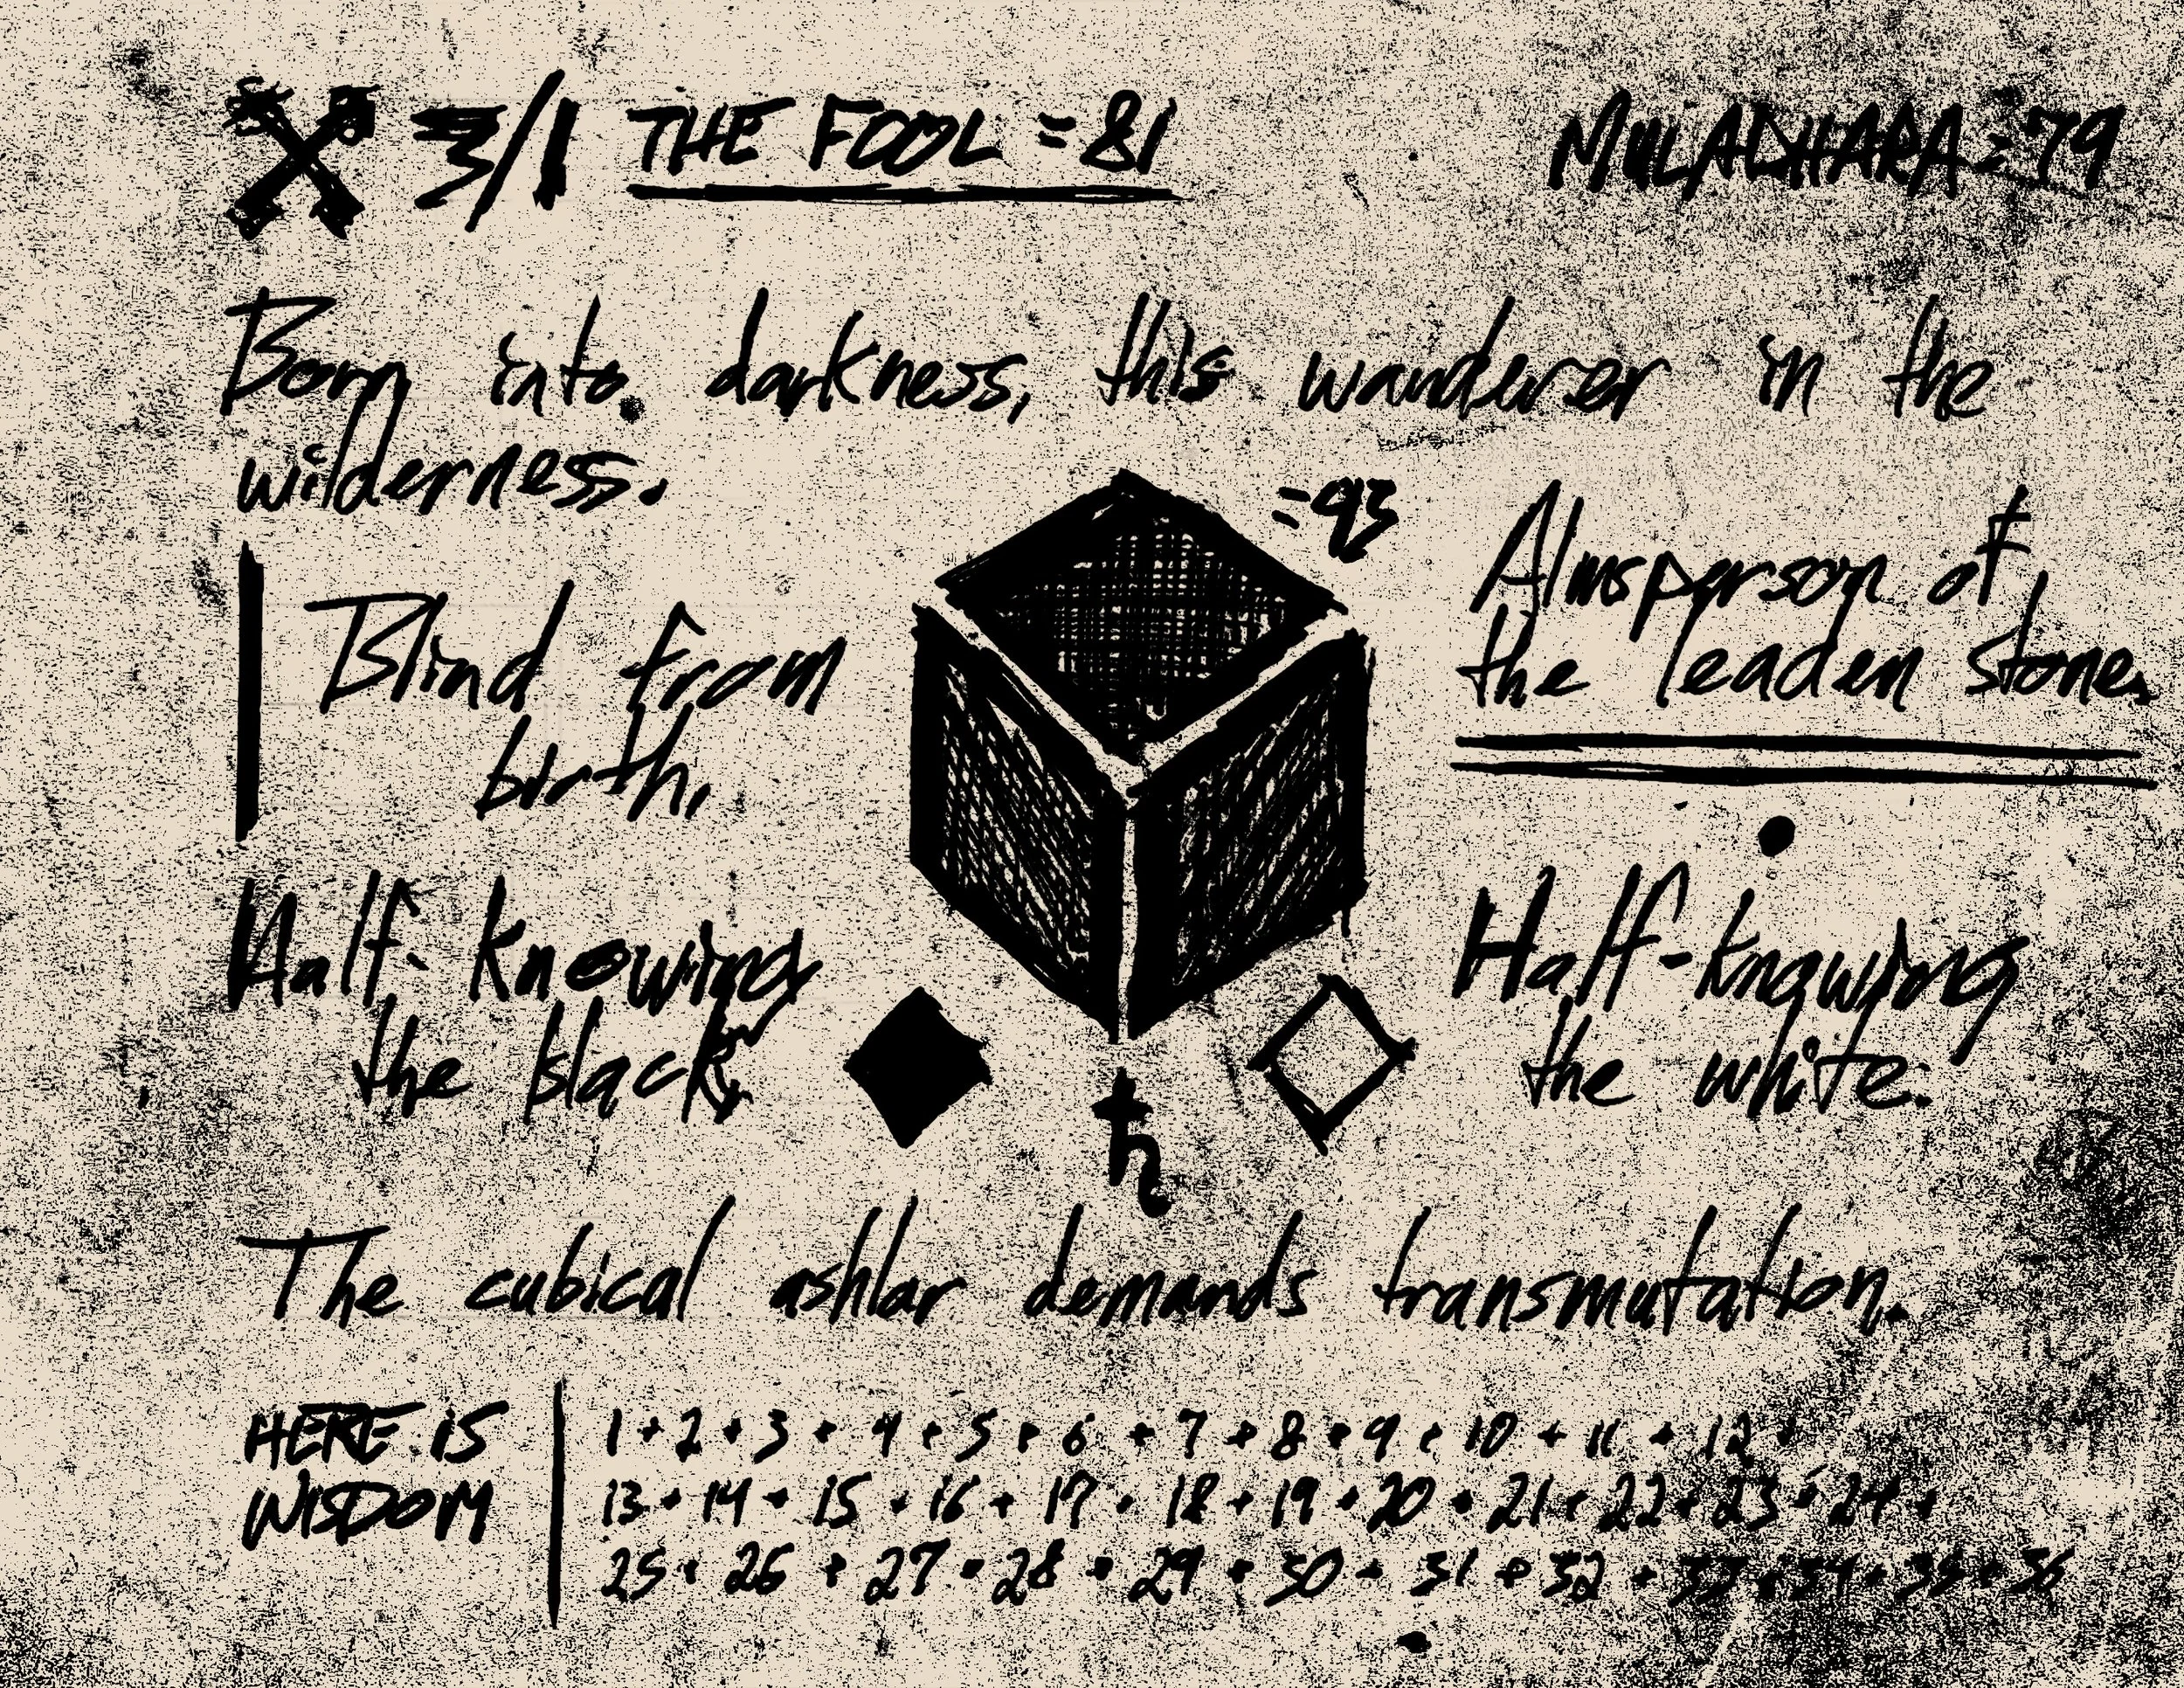 3/1 THE FOOL = 81
MULADHARA = 79
Born into darkness, this wanderer in the
wilderness.
= 93
Almsperson of
the leaden stone.
Blind from
birth,
Half-knowing
the black,
Half-knowing
the white.
♄
The cubical ashlar demands transmutation.
HERE IS
WISDOM
1 + 2 + 3 + 4 + 5 + 6 + 7 + 8 + 9 + 10 + 11 + 12 +
13 + 14 + 15 + 16 + 17 + 18 + 19 + 20 + 21 + 22 + 23 + 24 +
25 + 26 + 27 + 28 + 29 + 30 + 31 + 32 + 33 + 34 + 35 + 36